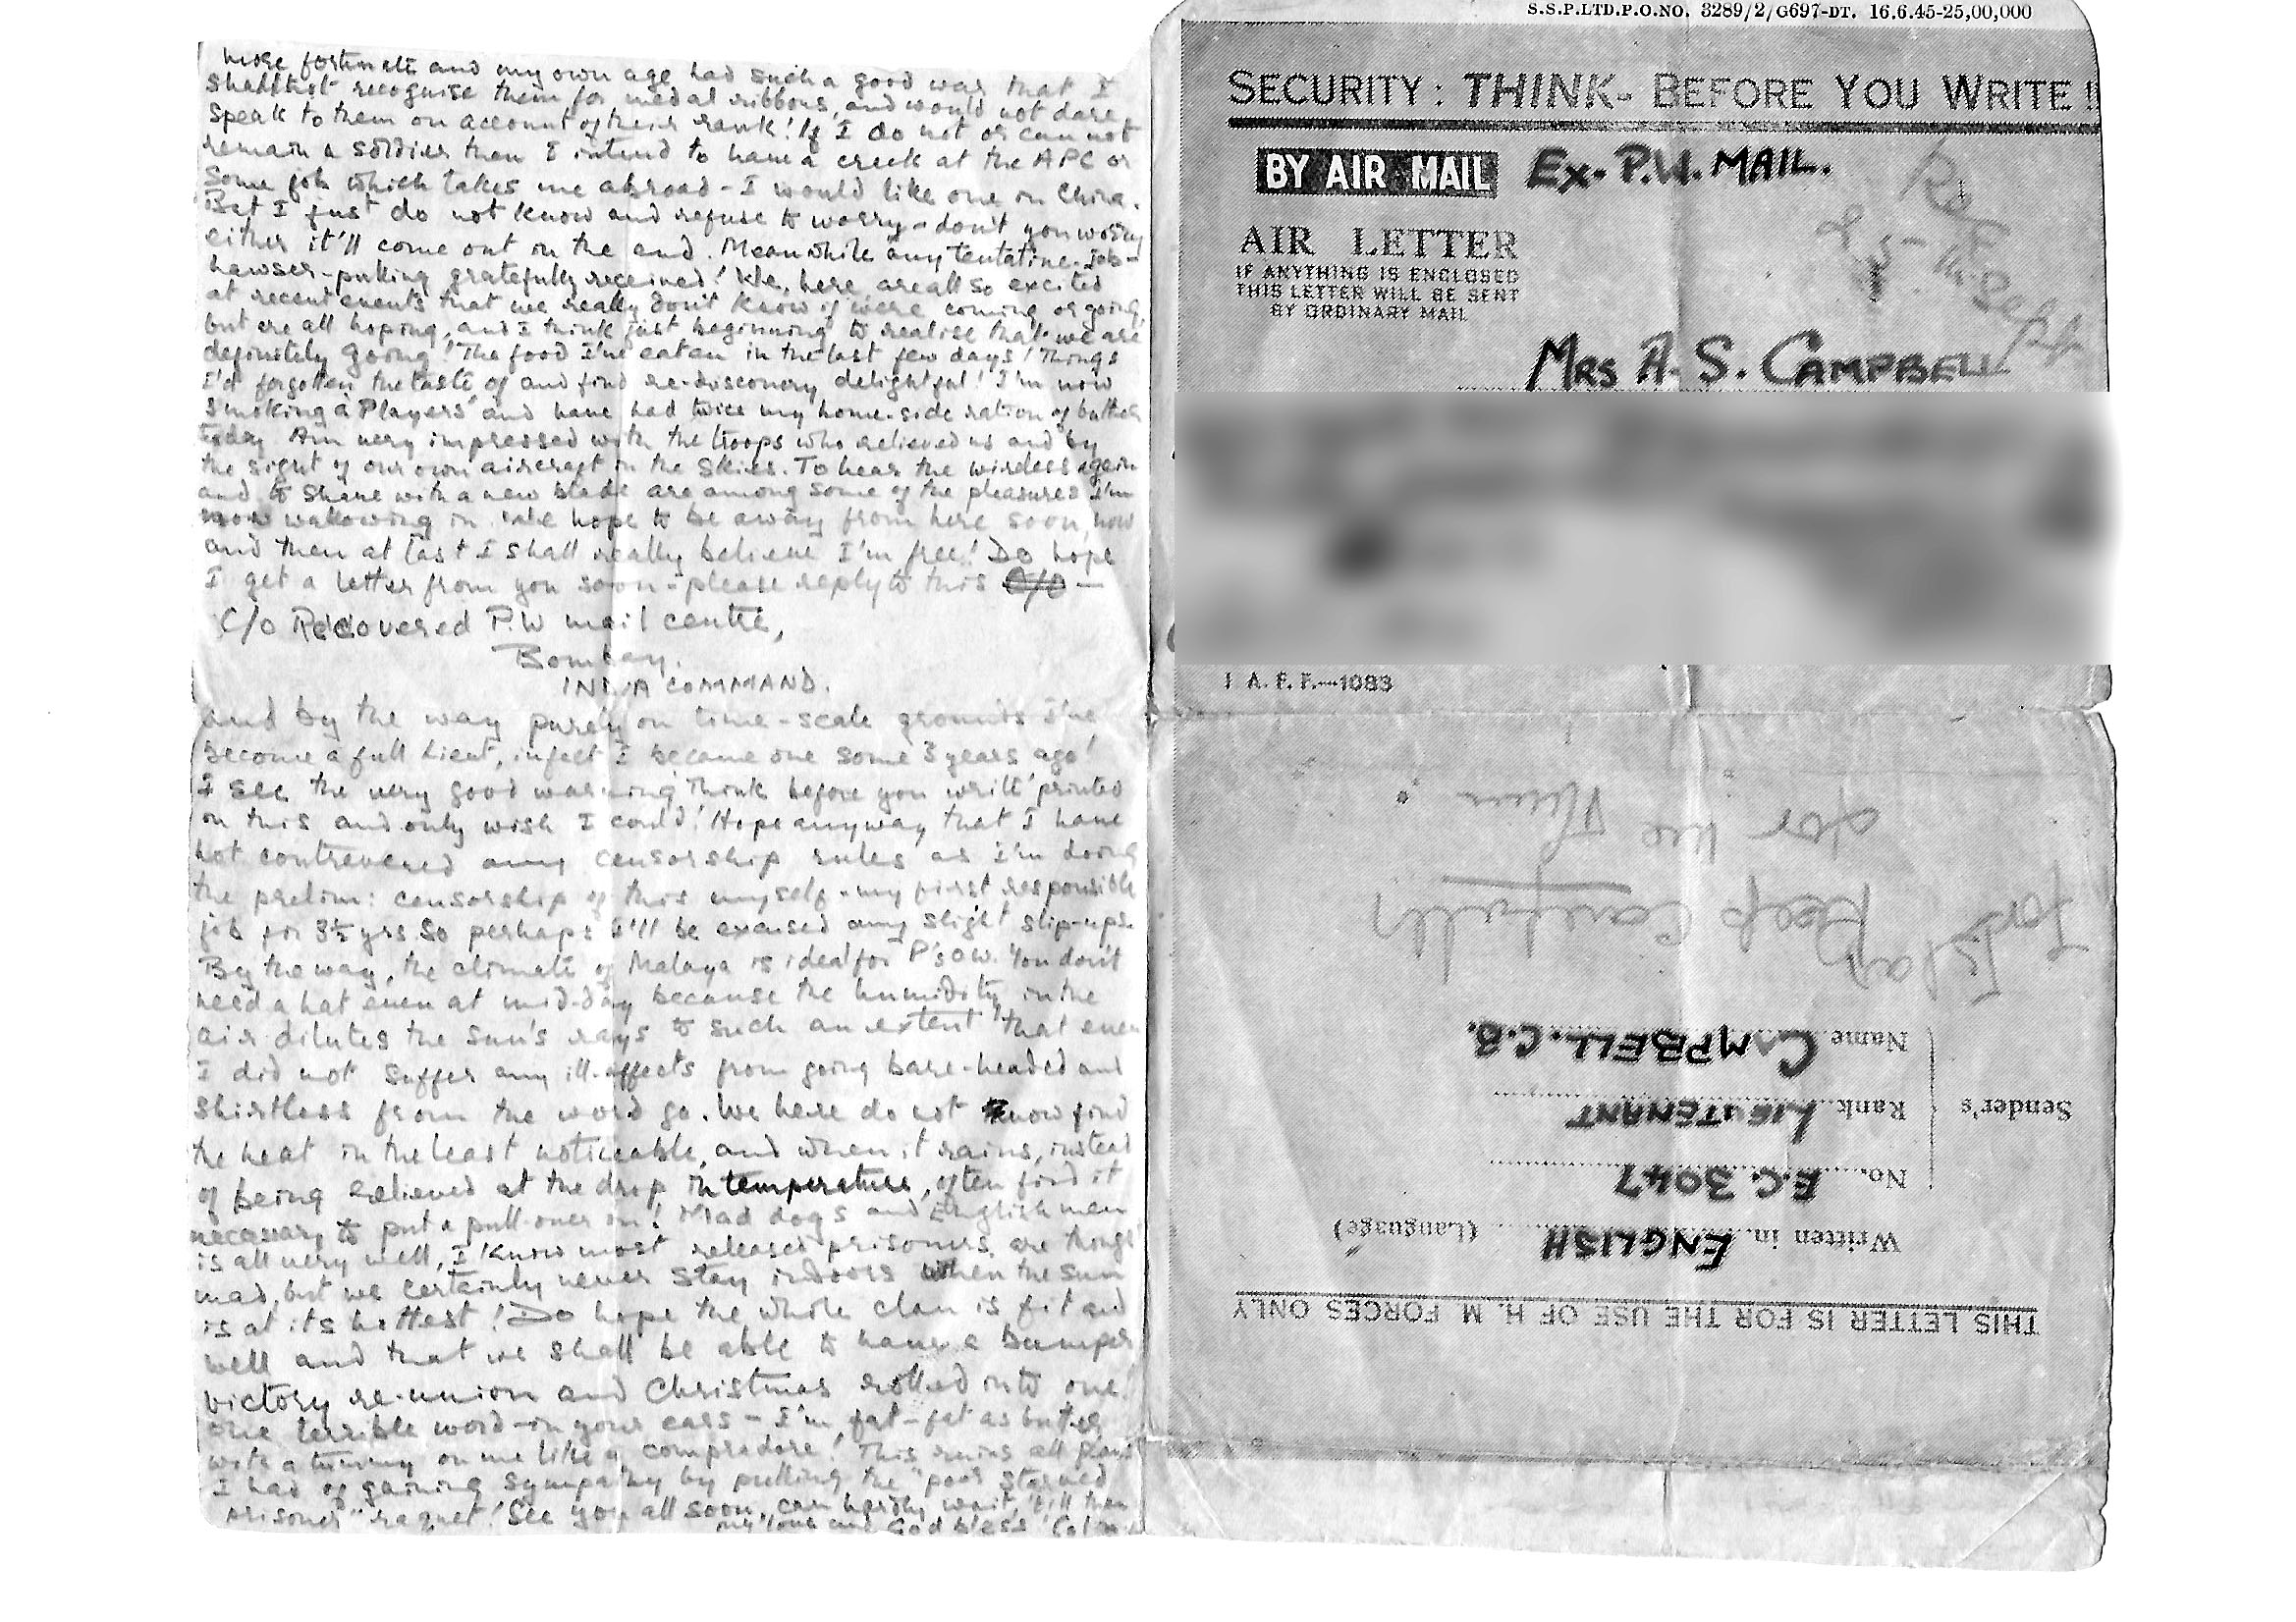 more fortunate and my own age had such a good war that I
shall not recognise them for medal ribbons, and would not dare
speak to them on account of their rank! If I do not or cannot
remain a soldier then I intend to have a crack at the APC or
some job which takes me abroad - I would like one in China.
But I just do not know and refuse to worry - don't you worry
either it'll come out in the end. Meanwhile any tentative job-
hawser-pulling gratefully received! We, here are all so excited
at recent events that we really don't know if we're coming or going,
but are all hoping, and I think just beginning to realise that we are
definitely going! The food I've eaten in the last few days! Things
I'd forgotten the taste of and find re-discovery delightful! I'm now
smoking a 'Players' and have had twice my home-side ration of butter
today. Am very impressed with the troops who relieved us and by
the sight of our own aircraft in the skies. To hear the wireless again
and to shave with a new blade are among some of the pleasures I'm
now wallowing in. We hope to be away from here soon, now
and then at last I shall really believe I'm free! Do hope
I get a letter from you soon - please reply to this C/O —
C/o Recovered P.W mail centre,
Bombay.
INDIA COMMAND.
and by the way purely on time-scale grounds I've
become a full Lieut, infact I became one some 3 years ago!
I see the very good warning 'Think before you write' printed
on this and only wish I could! Hope anyway, that I have
not contravened any censorship rules as I'm doing
the prelim: censorship of this myself - my first responsible
job for 3½ yrs. So perhaps I'll be excused any slight slip-ups.
By the way, the climate of Malaya is ideal for P's.o.w. You don't
need a hat even at mid-day because the humidity in the
air dilutes the sun's rays to such an extent that even
I did not suffer any ill-effects from going bare-headed and
shirtless from the word go. We here do not now find
the heat in the least noticeable, and when it rains, instead
of being relieved at the drop in temperature, often find it
necessary to put a pull-over on! Mad dogs and Englishmen
is all very well, I know most released prisoners are though
mad, but we certainly never stay indoors when the sun
is at its hottest! Do hope the whole clan is fit and
well and that we shall be able to have a bumper
victory re-union and Christmas rolled into one!
One terrible word - in your ears - I'm fat - fat as butter
with a tummy on me like a compradore! This ruins all plans
I had of gaining sympathy by pulling the "poor starved
prisoner" raquet! See you all soon, can hardly wait, 'till then
my love and God bless Colin
S.S.P.LTD.P.O.NO. 3289/2/G697-DT. 16.6.45-25,00,000
SECURITY: THINK- BEFORE YOU WRITE!!
BY AIR MAIL EX-P.W. MAIL.
AIR LETTER
IF ANYTHING IS ENCLOSED
THIS LETTER WILL BE SENT
BY ORDINARY MAIL
MRS A. S. CAMPBELL
Sept
I A. F. F.—1083
THIS LETTER IS FOR THE USE OF H. M FORCES ONLY
Written in ENGLISH (Language)
Sender's
No. E.C. 3047
Rank LIEUTENANT
Name CAMPBELL. C.B.
Keep Carefully
for me